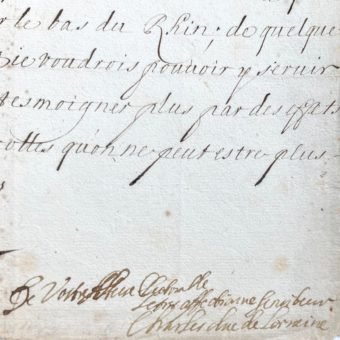 r le bas du Rhin; de quelque
vie voudrois pouvoir y servir
tesmoigner plus par des effets
olles qu'on ne peut estre plus
De Vostre
Le tres affectionne serviteur
Charles duc de Lorraine